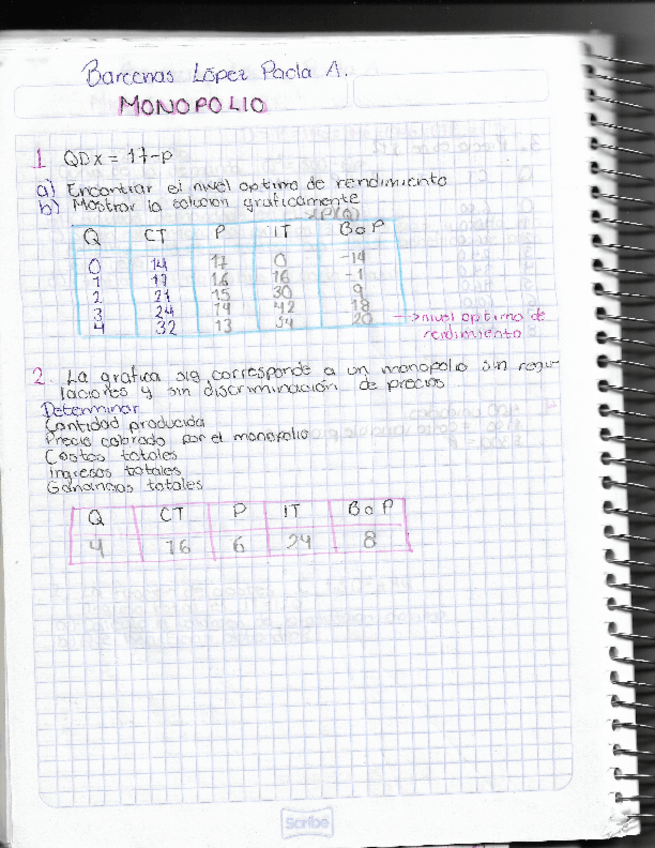 Barcenas López Paola A.
MONOPOLIO
1 QDx = 17-p
a) Encontrar el nivel optimo de rendimiento
b) Mostrar la solucion graficamente
xP(Q)
Q CT P IT B o P
0 14 17 0 -14
1 17 16 16 -1
2 21 15 30 9
3 24 14 42 18
4 32 13 54 20 → nivel optimo de
rendimiento
2. La grafica sig corresponde a un monopolio sin regu-
laciones y sin discriminación de precios
Determinar
Cantidad producida
Precio cobrado por el monopolio
Costos totales
Ingresos totales
Ganancias totales
Q CT P IT B o P
4 16 6 24 8
Scribe